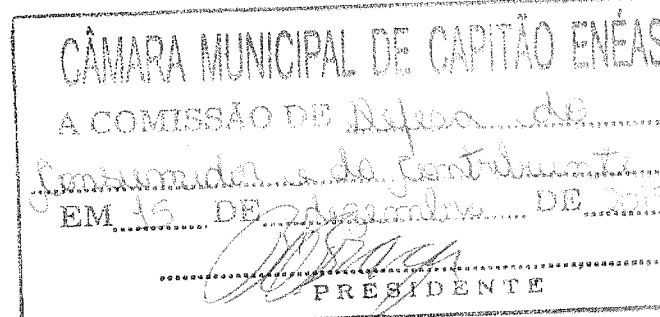 CÂMARA MUNICIPAL DE CAPITÃO ENÉAS
A COMISSÃO DE Defesa do
Consumidor e do Contribuinte
EM 15 DE dezembro DE
PRESIDENTE